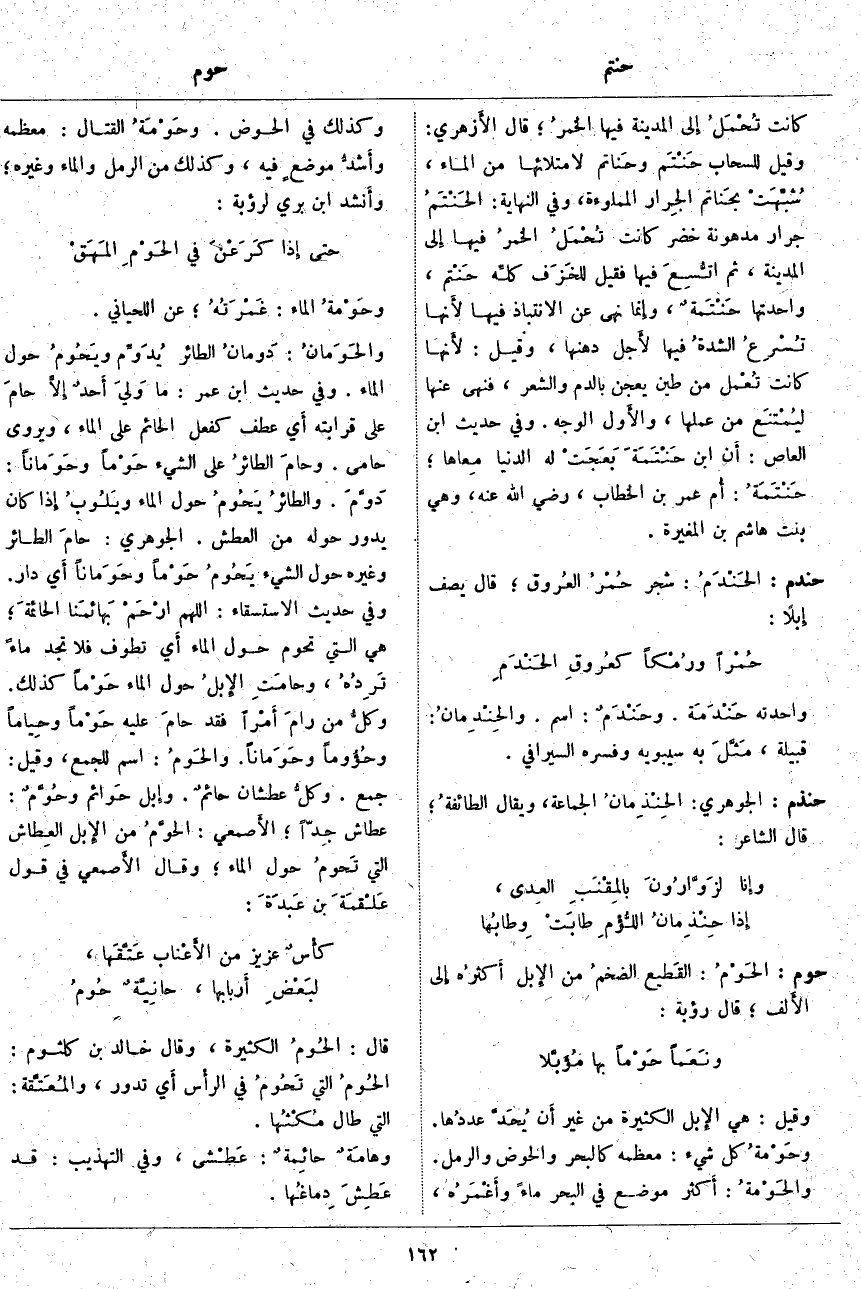 حنتم
حوم
كانت تُحْمَلُ إلى المدينة فيها الخمرُ ؛ قال الأزهري :
وقيل للسحاب حَنْتَم وحَناتم لامتلائها من الماء ،
شُبِّهَتْ بحَناتم الجِرار المملوءة، وفي النهاية: الحَنْتَمُ
جرار مدهونة خضر كانت تُحْمَلُ الخمرُ فيها إلى
المدينة ، ثم اتُّسِعَ فيها فقيل للخَزَف كلِّه حَنْتم ،
واحدتها حَنْتَمةٌ ، وإنما نهى عن الانتباذ فيها لأنها
تُسْرعُ الشدةُ فيها لأجل دهنها ، وقيل : لأنها
كانت تُعْمل من طين يعجن بالدم والشعر ، فنهى عنها
ليُمْتنَع من عملها ، والأول الوجه . وفي حديث ابن
العاص : أن ابن حَنْتَمَةَ بَعَجَتْ له الدنيا مِعاها ؛
حَنْتَمَةُ : أم عمر بن الخطاب ، رضي الله عنه، وهي
بنت هاشم بن المغيرة .
حندم : الحَنْدَمُ : شجر حُمْرُ العُروق ؛ قال يصف
إبلًا :
حُمْراً ورُمْكاً كعُروقِ الحَنْدَمِ
واحدته حَنْدَمَة . وحَنْدَمٌ : اسم . والحِنْدِمانُ:
قبيلة ، مَثَّلَ به سيبويه وفسره السيرافي .
حنذم : الجوهري: الحِنْذِمانُ الجماعة، ويقال الطائفةُ ؛
قال الشاعر :
وإنا لزَوَّارُونَ بالمِقْنَبِ العِدى ،
إذا حِنْذِمانُ اللُّؤْمِ طابَتْ وِطابُها
حوم : الحَوْمُ : القَطيع الضخمُ من الإبل أكثرُه إلى
الألف ؛ قال رؤبة :
ونَعَماً حَوْماً بها مُؤَبَّلا
وقيل : هي الإبل الكثيرة من غير أن يُحَدَّ عددُها.
وحَوْمةُ كل شيء : معظمه كالبحر والحوض والرمل.
والحَوْمةُ : أكثر موضع في البحر ماءً وأَغْمَرُه ،
وكذلك في الحوض . وحَوْمَةُ القتال : معظمه
وأَشدُّ موضعٍ فيه ، وكذلك من الرمل والماء وغيره؛
وأنشد ابن بري لرؤبة :
حتى إذا كَرَعْنَ في الحَوْمِ المَهَقْ
وحَوْمةُ الماء : غَمْرَتُهُ ؛ عن اللحياني .
والحَوَمانُ : دَومانُ الطائر يُدَوِّم ويَحُومُ حول
الماء . وفي حديث ابن عمر : ما وَلِيَ أحدٌ إلاَّ حامَ
على قرابته أي عطف كفعل الحائم على الماء ، ويروى
حامى . وحامَ الطائرُ على الشيء حَوْماً وحَوَماناً :
دَوَّمَ . والطائرُ يَحُومُ حول الماء ويَلُوبُ إذا كان
يدور حوله من العطش . الجوهري : حامَ الطائر
وغيره حول الشيء يَحُومُ حَوْماً وحَوَماناً أي دار.
وفي حديث الاستسقاء : اللهم ارْحَمْ بَهائمَنا الحائمَةَ ؛
هي التي تحوم حول الماء أي تطوف فلا تجد ماءً
تَرِدُهُ ، وحامَتِ الإبلُ حول الماء حَوْماً كذلك.
وكلُّ من رامَ أمْراً فقد حامَ عليه حَوْماً وحِياماً
وحُؤوماً وحَوَماناً. والحَومُ : اسم للجمع، وقيل:
جمع . وكلُّ عطشان حائمٌ . وإبل حَوائم وحُوَّمٌ :
عطاش جدّاً ؛ الأصمعي : الحوَّم من الإبل العِطاش
التي تَحومُ حول الماء ؛ وقال الأصمعي في قول
عَلْقمَةَ بن عَبدَةَ :
كأسٌ عزيزٍ من الأَعْناب عَتَّقَها ،
لبَعْضِ أربابِها ، حانِيَّةٌ حُومُ
قال : الحُومُ الكثيرة ، وقال خالد بن كلثوم :
الحُومُ التي تَحُومُ في الرأس أي تدور ، والمُعَتَّقة:
التي طال مُكْثُها .
وهامَةٌ حائِمةٌ : عَطْشى ، وفي التهذيب : قد
عَطِشَ دِماغُها .
١٦٢